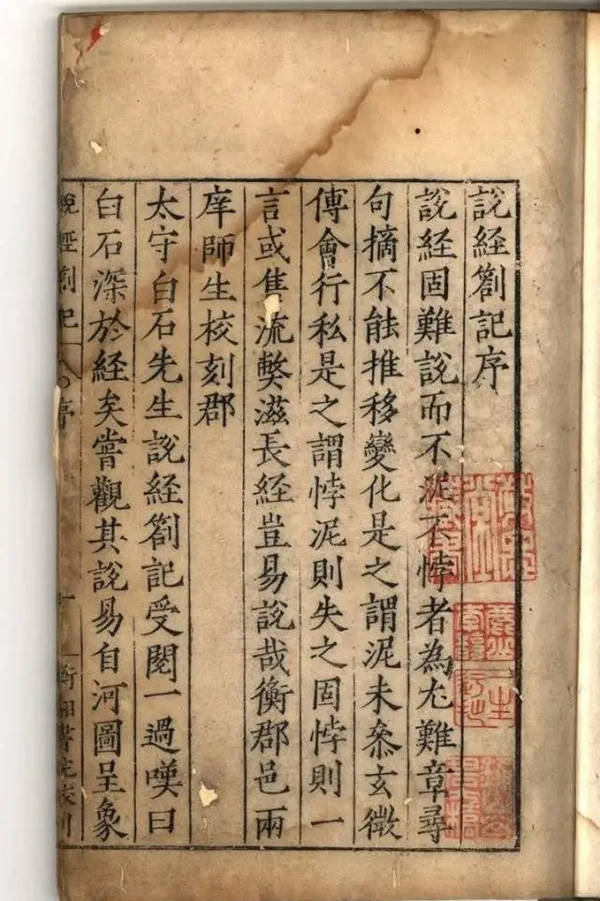 說經劄記序
說經固難說而不泥不悖者為尤難章尋
句摘不能推移變化是之謂泥未叅玄微
傅會行私是之謂悖泥則失之固悖則一
言或售流弊滋長經豈易說哉衡郡邑兩
庠師生校刻郡
太守白石先生說經劄記受閱一過嘆曰
白石深於經矣嘗觀其說易自河圖呈象
說經劄記 序 一